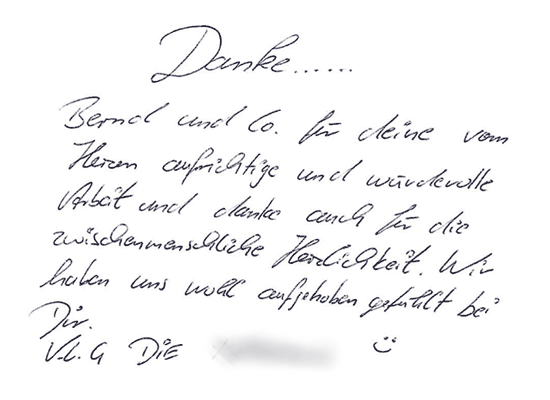 Danke......
Bernd und Co. für deine vom
Herzen aufrichtige und würdevolle
Arbeit und danke auch für die
zwischenmenschliche Herzlichkeit. Wir
haben uns wohl aufgehoben gefühlt bei
Dir.
V.L.G DiE